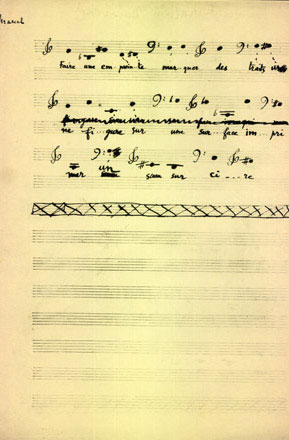 Marcel
Faire une em prein te mar quer des traits
u ne fi gure sur une sur - face im - pri
mer un
sceau sur ci - - re